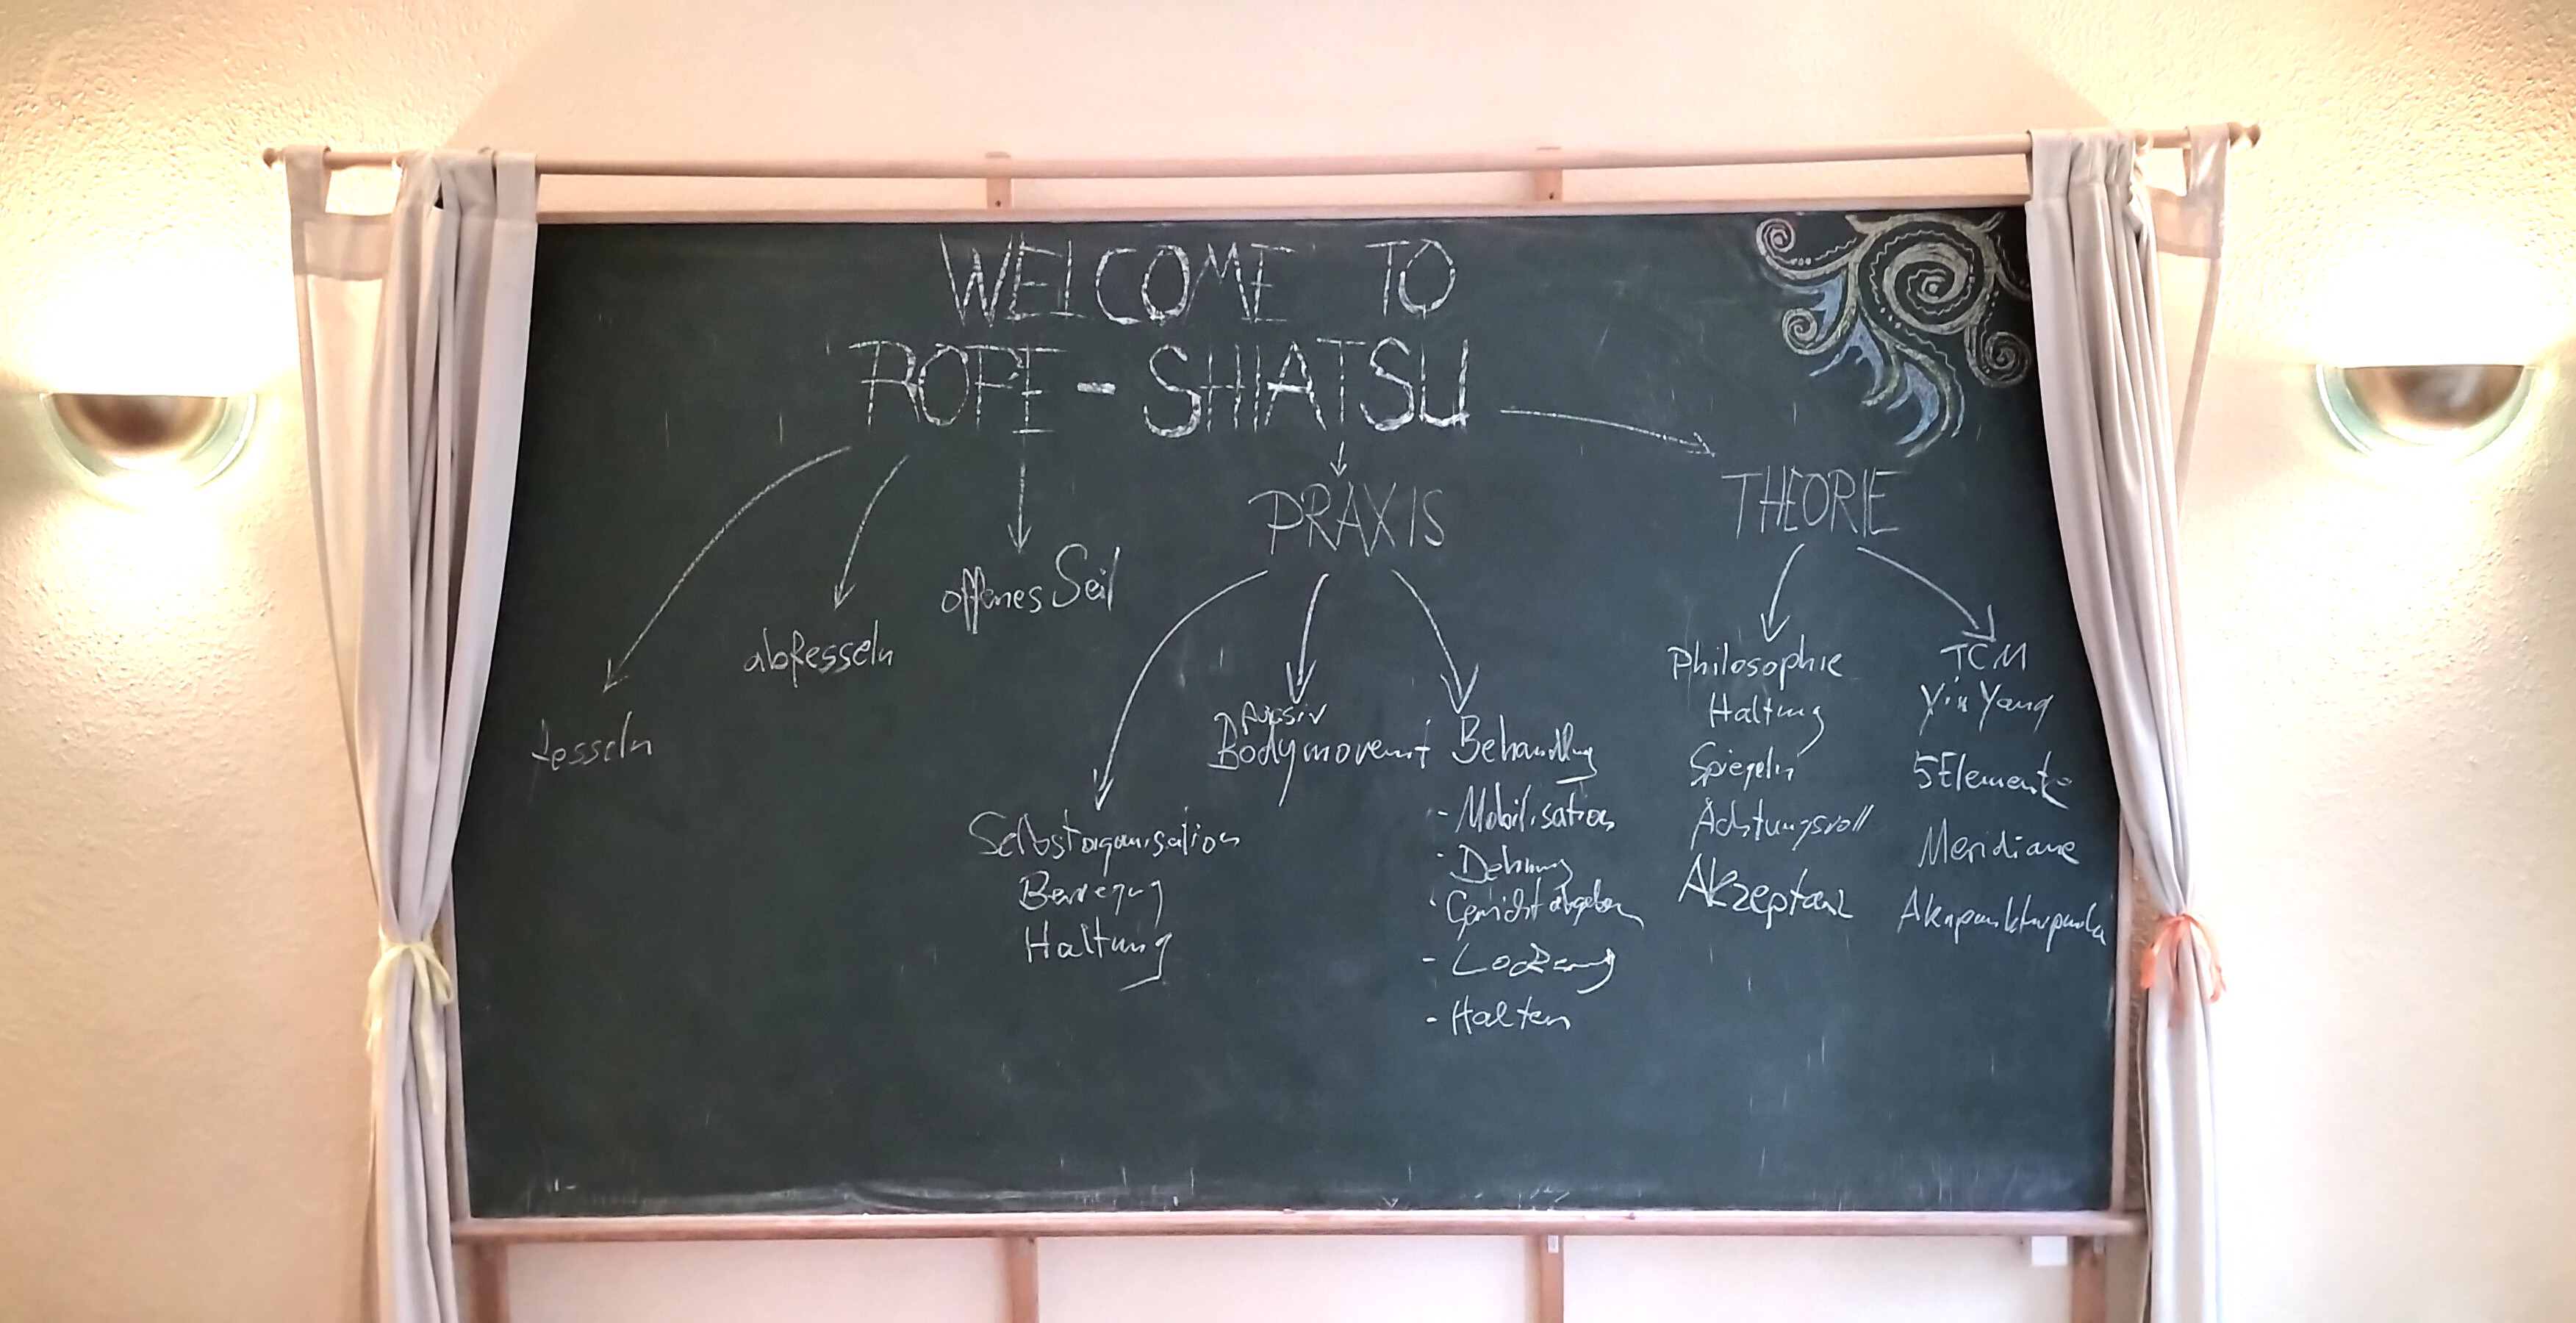 WELCOME TO
ROPE - SHIATSU
fesseln
abfesseln
offenes Seil
PRAXIS
Selbstorganisation
Bewegung
Haltung
passiv
Bodymovemt
Behandlug
- Mobilisation
- Dehnung
- Gewicht abgeben
- Lockerung
- Halten
THEORIE
Philosophie
Haltung
Spiegeln
Achtungsvoll
Akzeptanz
TCM
Yin Yang
5 Elemente
Meridiane